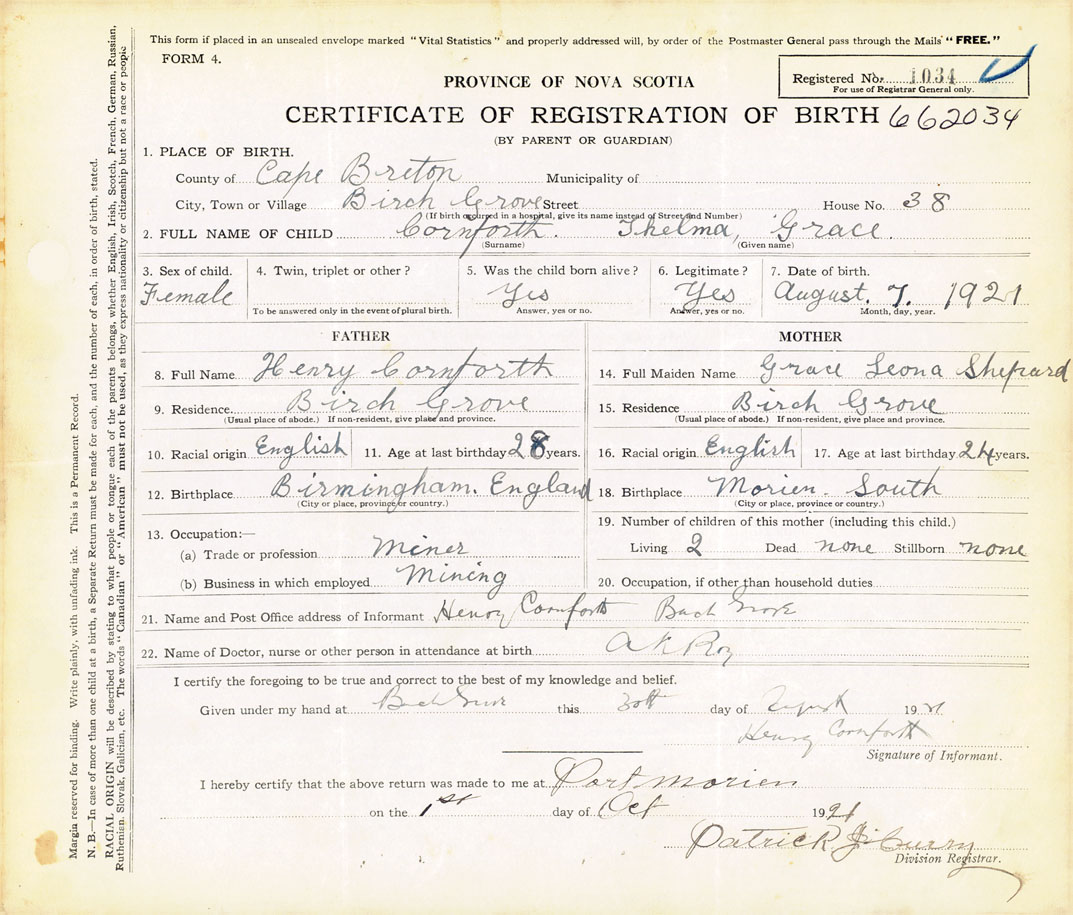 This form if placed in an unsealed envelope marked "Vital Statistics" and properly addressed will, by order of the Postmaster General pass through the Mails "FREE."
FORM 4.
Registered No. 1034
For use of Registrar General only.
PROVINCE OF NOVA SCOTIA
CERTIFICATE OF REGISTRATION OF BIRTH 662034
(BY PARENT OR GUARDIAN)
1. PLACE OF BIRTH.
County of Cape Breton Municipality of
City, Town or Village Birch Grove Street House No. 38
(If birth occurred in a hospital, give its name instead of Street and Number)
2. FULL NAME OF CHILD Cornforth Thelma, Grace.
(Surname) (Given name)
3. Sex of child. 4. Twin, triplet or other? 5. Was the child born alive? 6. Legitimate? 7. Date of birth.
Female Yes Yes August. 7. 1921
To be answered only in the event of plural birth. Answer, yes or no. Answer, yes or no. Month, day, year.
FATHER MOTHER
8. Full Name Henry Cornforth 14. Full Maiden Name Grace Leona Sheppard
9. Residence Birch Grove 15. Residence Birch Grove
(Usual place of abode.) If non-resident, give place and province. (Usual place of abode.) If non-resident, give place and province.
10. Racial origin English 11. Age at last birthday 28 years. 16. Racial origin English 17. Age at last birthday 24 years.
12. Birthplace Birmingham. England 18. Birthplace Morien. South
(City or place, province or country.) (City or place, province or country.)
13. Occupation:— 19. Number of children of this mother (including this child.)
(a) Trade or profession Miner Living 2 Dead none Stillborn none
(b) Business in which employed Mining 20. Occupation, if other than household duties
21. Name and Post Office address of Informant Henry Cornforth Birch Grove
22. Name of Doctor, nurse or other person in attendance at birth A K Roy
I certify the foregoing to be true and correct to the best of my knowledge and belief.
Given under my hand at Birch Grove this 30th day of August 1921
Henry Cornforth
Signature of Informant.
I hereby certify that the above return was made to me at Port Morien
on the 1st day of Oct 1921
Patrick
Division Registrar.
Margin reserved for binding. Write plainly, with unfading ink. This is a Permanent Record.
N. B.—In case of more than one child at a birth, a Separate Return must be made for each, and the number of each, in order of birth, stated.
RACIAL ORIGIN will be described by stating to what people or tongue each of the parents belongs, whether English, Irish, Scotch, French, German, Russian,
Ruthenian, Slovak, Galician, etc. The words "Canadian" or "American" must not be used, as they express nationality or citizenship but not a race or people